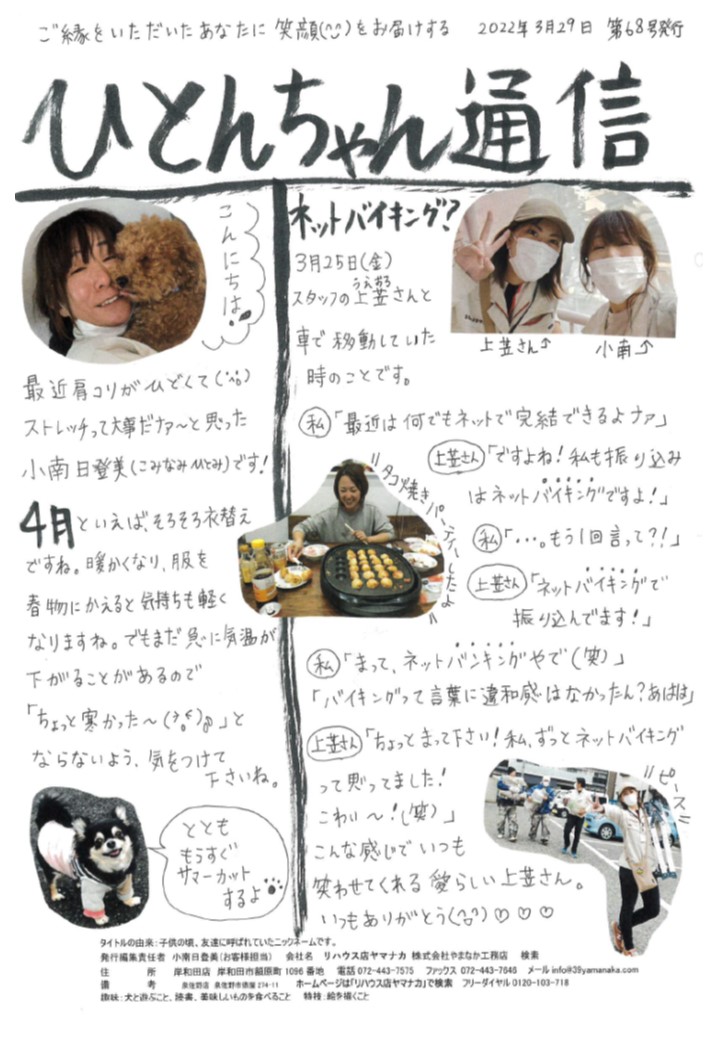 ご縁をいただいたあなたに笑顔(^^)をお届けする 2022年3月29日 第68号発行
ひとんちゃん通信
こんにちは!
最近肩コリがひどくて(^^;)
ストレッチって大事だナァ〜と思った
小南日登美(こみなみひとみ)です!
4月といえば、そろそろ衣替え
ですね。暖かくなり、服を
春物にかえると気持ちも軽く
なりますね。でもまだ急に気温が
下がることがあるので
「ちょっと寒かった〜」と
ならないよう、気をつけて
下さいね。
ととも
もうすぐ
サマーカット
するよ
ネットバイキング?
3月25日(金)
スタッフの上莣さんと
車で移動していた
時のことです。
上莣さん↑ 小南↑
私「最近は何でもネットで完結できるよナァ」
上莣さん「ですよね!私も振り込み
はネットバイキングですよ!」
私「・・・。もう1回言って?!」
上莣さん「ネットバイキングで
振り込んでます!」
"タコ焼きパーティーしたよ"
私「まって、ネットバンキングやで(笑)」
「バイキングって言葉に違和感はなかったん?あはは」
上莣さん「ちょっとまって下さい!私、ずっとネットバイキング
って思ってました!
こわい〜!(笑)」
こんな感じでいつも
笑わせてくれる愛らしい上莣さん。
いつもありがとう(^^)♡♡♡
"ピース"
タイトルの由来:子供の頃、友達に呼ばれていたニックネームです。
発行編集責任者 小南日登美(お客様担当) 会社名 リハウス店ヤマナカ 株式会社やまなか工務店 検索
住 所 岸和田店 岸和田市額原町1096番地 電話 072-443-7575 ファックス 072-443-7646 メール info@39yamanaka.com
備 考 泉佐野店 泉佐野市 274-11 ホームページは「リハウス店ヤマナカ」で検索 フリーダイヤル 0120-103-718
趣味:犬と遊ぶこと、読書、美味しいものを食べること 特技:絵を描くこと